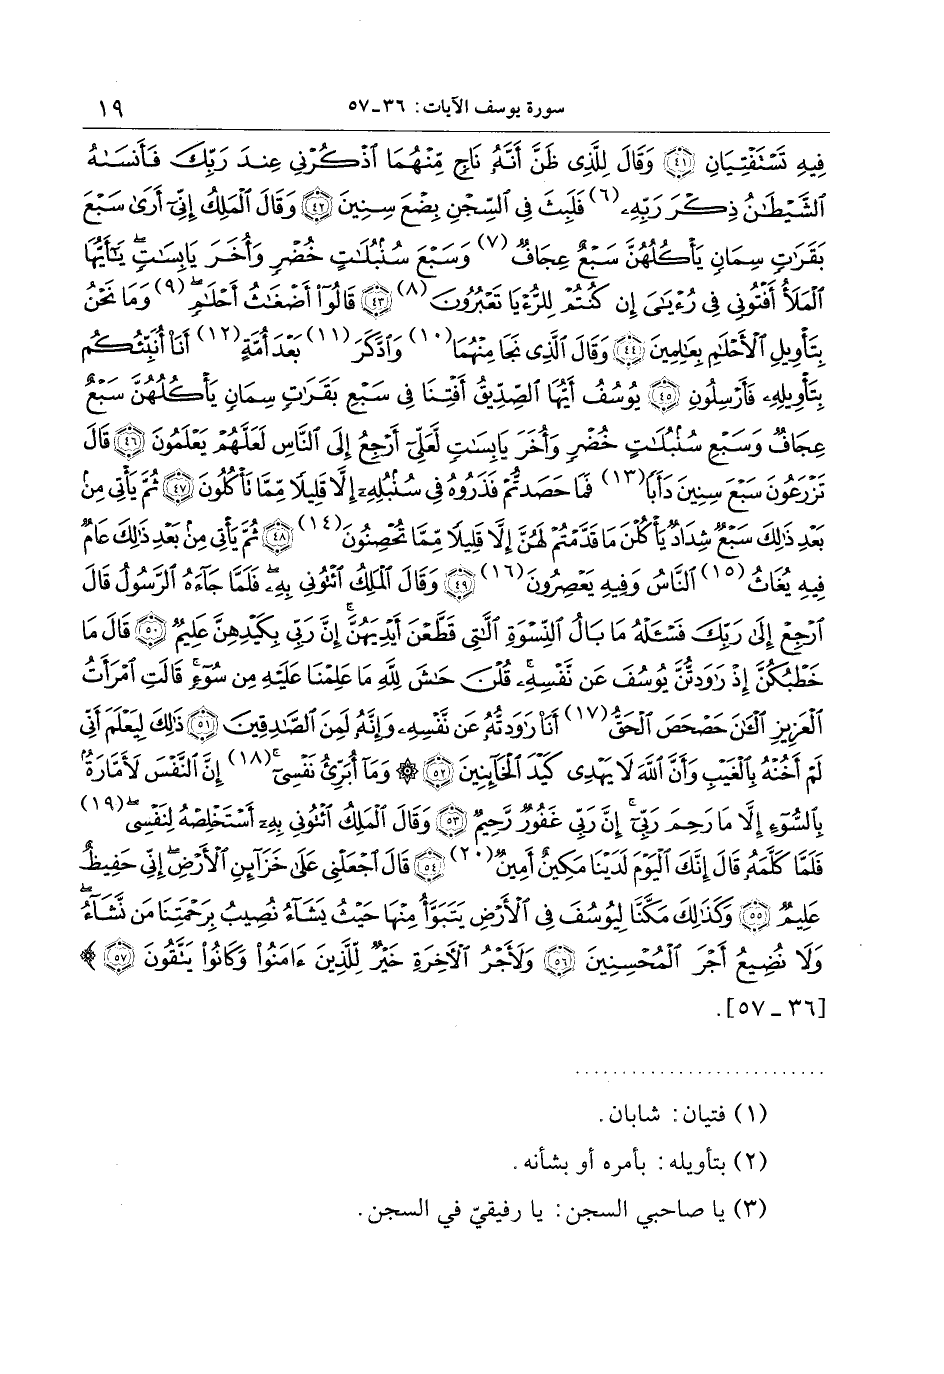 سورة يوسف الآيات: ٣٦ـ٥٧ ١٩
فِيهِ تَسْتَفْتِيَانِ ﴿٤١﴾ وَقَالَ لِلَّذِى ظَنَّ أَنَّهُۥ نَاجٍ مِّنْهُمَا ٱذْكُرْنِى عِندَ رَبِّكَ فَأَنسَىٰهُ
ٱلشَّيْطَـٰنُ ذِكْرَ رَبِّهِۦ(٦) فَلَبِثَ فِى ٱلسِّجْنِ بِضْعَ سِنِينَ ﴿٤٢﴾ وَقَالَ ٱلْمَلِكُ إِنِّىٓ أَرَىٰ سَبْعَ
بَقَرَٰتٍ سِمَانٍ يَأْكُلُهُنَّ سَبْعٌ عِجَافٌ(٧) وَسَبْعَ سُنۢبُلَـٰتٍ خُضْرٍ وَأُخَرَ يَابِسَـٰتٍ ۖ يَـٰٓأَيُّهَا
ٱلْمَلَأُ أَفْتُونِى فِى رُءْيَـٰىَ إِن كُنتُمْ لِلرُّءْيَا تَعْبُرُونَ(٨) ﴿٤٣﴾ قَالُوٓا۟ أَضْغَـٰثُ أَحْلَـٰمٍ ۖ(٩) وَمَا نَحْنُ
بِتَأْوِيلِ ٱلْأَحْلَـٰمِ بِعَـٰلِمِينَ ﴿٤٤﴾ وَقَالَ ٱلَّذِى نَجَا مِنْهُمَا(١٠) وَٱدَّكَرَ(١١) بَعْدَ أُمَّةٍ(١٢) أَنَا۠ أُنَبِّئُكُم
بِتَأْوِيلِهِۦ فَأَرْسِلُونِ ﴿٤٥﴾ يُوسُفُ أَيُّهَا ٱلصِّدِّيقُ أَفْتِنَا فِى سَبْعِ بَقَرَٰتٍ سِمَانٍ يَأْكُلُهُنَّ سَبْعٌ
عِجَافٌ وَسَبْعِ سُنۢبُلَـٰتٍ خُضْرٍ وَأُخَرَ يَابِسَـٰتٍ لَّعَلِّىٓ أَرْجِعُ إِلَى ٱلنَّاسِ لَعَلَّهُمْ يَعْلَمُونَ ﴿٤٦﴾ قَالَ
تَزْرَعُونَ سَبْعَ سِنِينَ دَأَبًا(١٣) فَمَا حَصَدتُّمْ فَذَرُوهُ فِى سُنۢبُلِهِۦٓ إِلَّا قَلِيلًا مِّمَّا تَأْكُلُونَ ﴿٤٧﴾ ثُمَّ يَأْتِى مِنۢ
بَعْدِ ذَٰلِكَ سَبْعٌ شِدَادٌ يَأْكُلْنَ مَا قَدَّمْتُمْ لَهُنَّ إِلَّا قَلِيلًا مِّمَّا تُحْصِنُونَ(١٤) ﴿٤٨﴾ ثُمَّ يَأْتِى مِنۢ بَعْدِ ذَٰلِكَ عَامٌ
فِيهِ يُغَاثُ(١٥) ٱلنَّاسُ وَفِيهِ يَعْصِرُونَ(١٦) ﴿٤٩﴾ وَقَالَ ٱلْمَلِكُ ٱئْتُونِى بِهِۦ ۖ فَلَمَّا جَآءَهُ ٱلرَّسُولُ قَالَ
ٱرْجِعْ إِلَىٰ رَبِّكَ فَسْـَٔلْهُ مَا بَالُ ٱلنِّسْوَةِ ٱلَّـٰتِى قَطَّعْنَ أَيْدِيَهُنَّ ۚ إِنَّ رَبِّى بِكَيْدِهِنَّ عَلِيمٌ ﴿٥٠﴾ قَالَ مَا
خَطْبُكُنَّ إِذْ رَٰوَدتُّنَّ يُوسُفَ عَن نَّفْسِهِۦ ۚ قُلْنَ حَـٰشَ لِلَّهِ مَا عَلِمْنَا عَلَيْهِ مِن سُوٓءٍ ۚ قَالَتِ ٱمْرَأَتُ
ٱلْعَزِيزِ ٱلْـَٔـٰنَ حَصْحَصَ ٱلْحَقُّ(١٧) أَنَا۠ رَٰوَدتُّهُۥ عَن نَّفْسِهِۦ وَإِنَّهُۥ لَمِنَ ٱلصَّـٰدِقِينَ ﴿٥١﴾ ذَٰلِكَ لِيَعْلَمَ أَنِّى
لَمْ أَخُنْهُ بِٱلْغَيْبِ وَأَنَّ ٱللَّهَ لَا يَهْدِى كَيْدَ ٱلْخَآئِنِينَ ﴿٥٢﴾ ۞ وَمَآ أُبَرِّئُ نَفْسِىٓ ۚ(١٨) إِنَّ ٱلنَّفْسَ لَأَمَّارَةٌۢ
بِٱلسُّوٓءِ إِلَّا مَا رَحِمَ رَبِّىٓ ۚ إِنَّ رَبِّى غَفُورٌ رَّحِيمٌ ﴿٥٣﴾ وَقَالَ ٱلْمَلِكُ ٱئْتُونِى بِهِۦٓ أَسْتَخْلِصْهُ لِنَفْسِى ۖ(١٩)
فَلَمَّا كَلَّمَهُۥ قَالَ إِنَّكَ ٱلْيَوْمَ لَدَيْنَا مَكِينٌ أَمِينٌ(٢٠) ﴿٥٤﴾ قَالَ ٱجْعَلْنِى عَلَىٰ خَزَآئِنِ ٱلْأَرْضِ ۖ إِنِّى حَفِيظٌ
عَلِيمٌ ﴿٥٥﴾ وَكَذَٰلِكَ مَكَّنَّا لِيُوسُفَ فِى ٱلْأَرْضِ يَتَبَوَّأُ مِنْهَا حَيْثُ يَشَآءُ ۚ نُصِيبُ بِرَحْمَتِنَا مَن نَّشَآءُ ۖ
وَلَا نُضِيعُ أَجْرَ ٱلْمُحْسِنِينَ ﴿٥٦﴾ وَلَأَجْرُ ٱلْـَٔاخِرَةِ خَيْرٌ لِّلَّذِينَ ءَامَنُوا۟ وَكَانُوا۟ يَتَّقُونَ ﴿٥٧﴾ ﴾
[٣٦ ـ ٥٧].
(١) فتيان: شابان.
(٢) بتأويله: بأمره أو بشأنه.
(٣) يا صاحبي السجن: يا رفيقيّ في السجن.